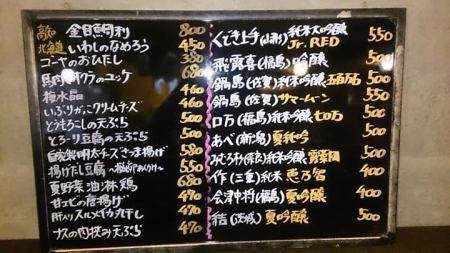 高知 金目鯛刺 800
北海道 いわしのなめろう 450
ゴーヤのおひたし 380
馬肉のユッケ 680
梅水晶 460
いぶりがっこクリームチーズ 460
とうもろこしの天ぷら 500
とろーり豆腐の天ぷら 500
自家製明太チーズさつま揚げ 580
揚げだし豆腐 550
夏野菜油淋鶏 680
甘エビの唐揚げ 490
肝入りスルメイカ丸干し 490
ナスの肉挟み天ぷら 490
くどき上手(山形)純米大吟醸 Jr.RED 550
飛露喜(福島)吟醸 500
鍋島(佐賀)純米吟醸 五百万石 500
鍋島(佐賀)サマームーン 550
ロ万(福島)純吟 七ロ万 500
あべ(新潟)夏純吟 500
みむろ杉(奈良)純米吟醸 500
作(三重)純米 恵乃智 400
会津中将(福島)夏吟醸 400
結(茨城)夏吟醸 500